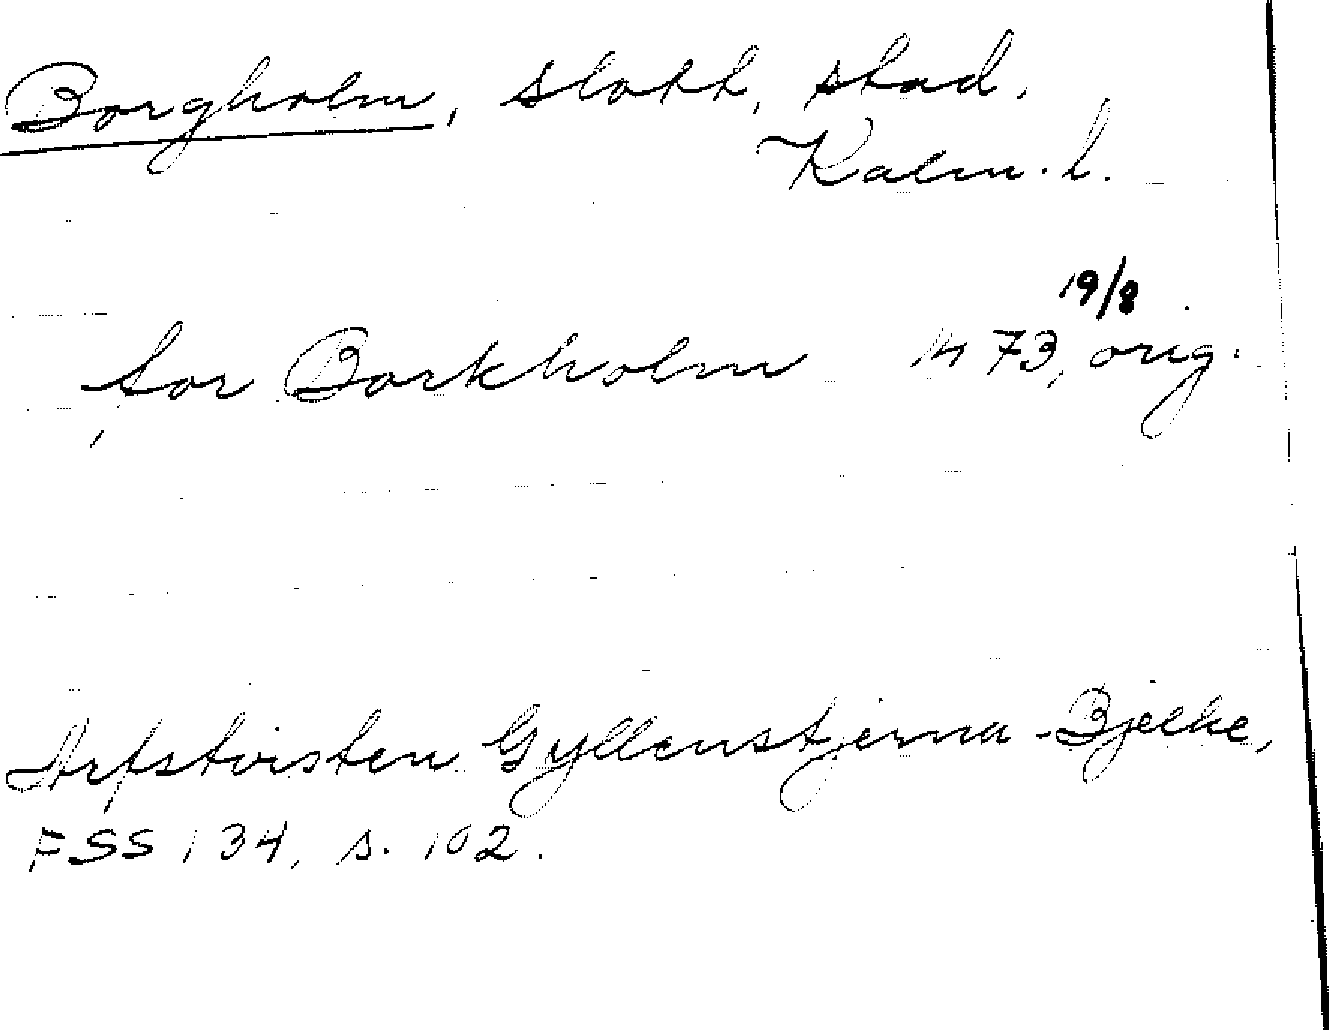 Borgholm, slott, stad.
Kalm. l.
for Borkholm 1473, 19/8 orig.
Arfstvisten Gyllenstjerna-Bjelke,
FSS 134, s. 102.